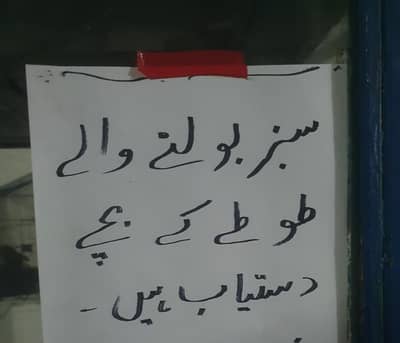 سبز بولنے والے
طوطے کے بچے
دستیاب ہیں -